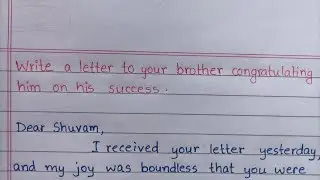 Write a letter to your brother congratulating
him on his success.
Dear Shuvam,
I received your letter yesterday,
and my joy was boundless that you were